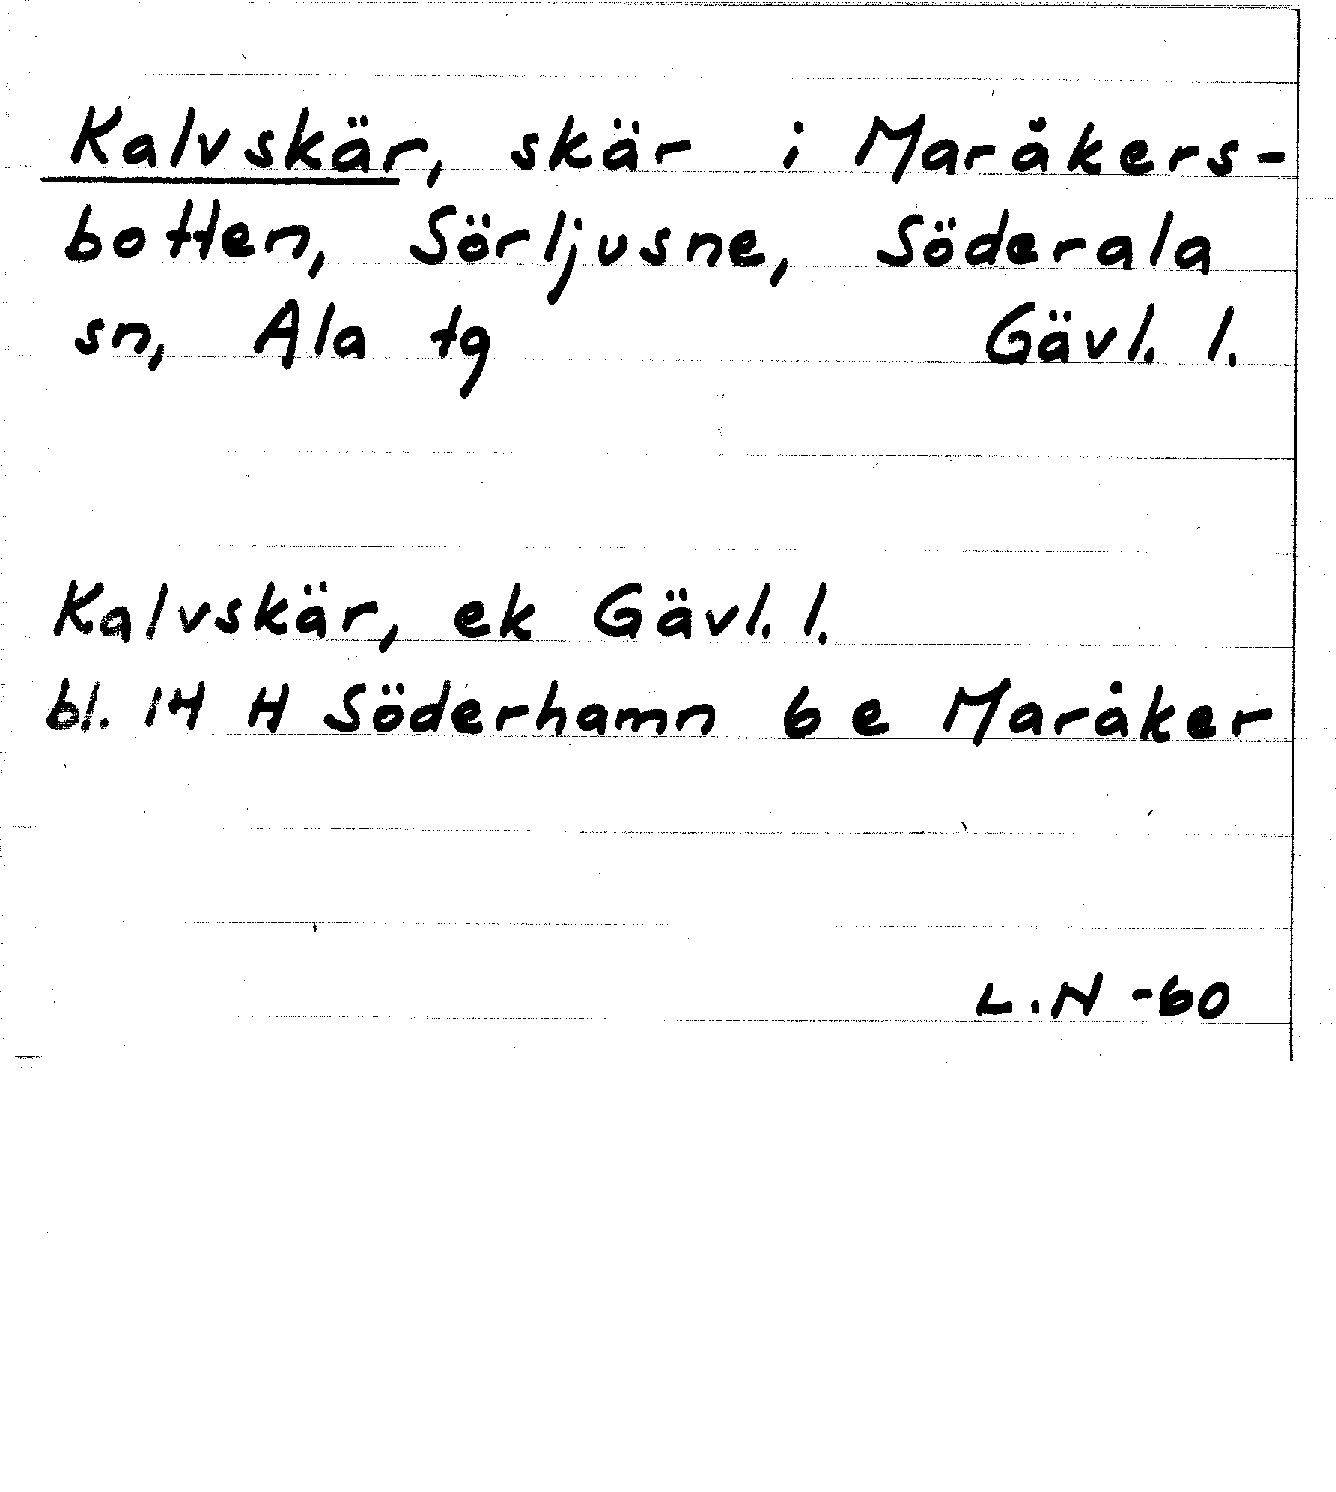 Kalvskär, skär i Maråkers-
botten, Sörljusne, Söderala
sn, Ala tg Gävl. l.
Kalvskär, ek Gävl. l.
bl. 14 H Söderhamn 6 e Maråker
L.N -60